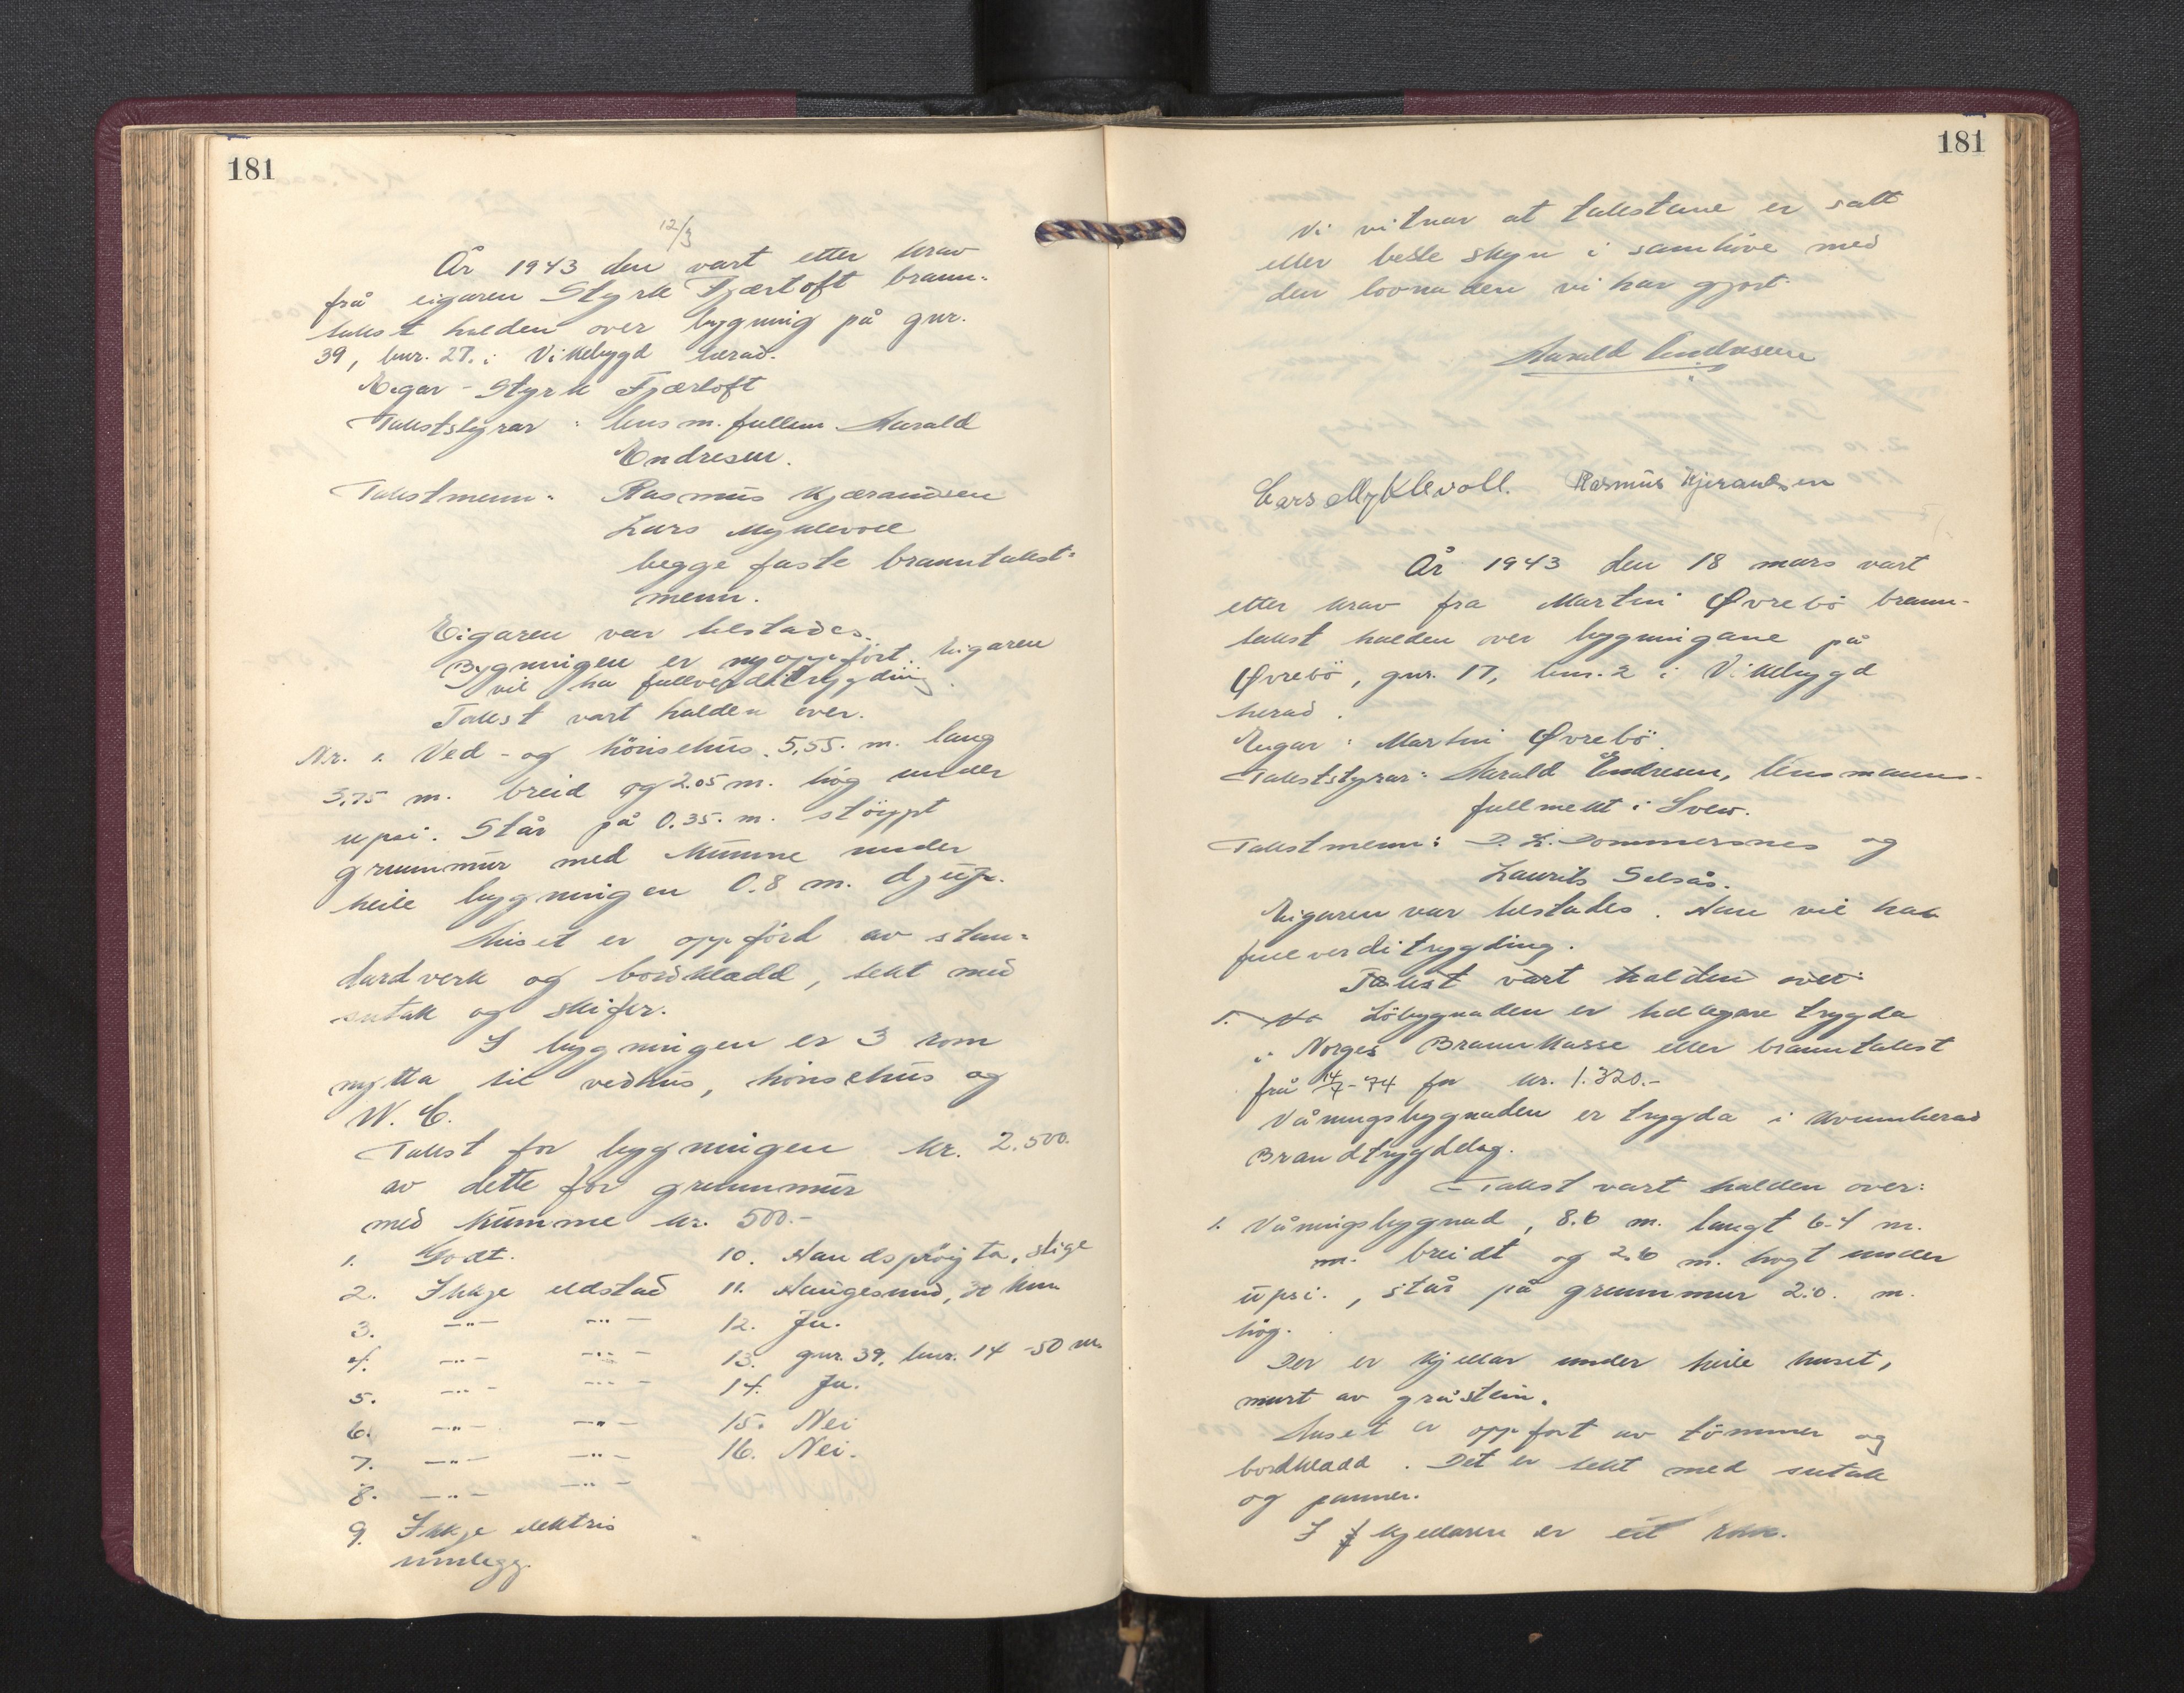 181
12/3
År 1943 den vart etter krav
frå eigaren Styrk Fjærtoft brann-
takst halden over bygning på gnr.
39, bnr. 27. i Vikebygd herad.
Eigar - Styrk Fjærtoft
Takststyrar : lensm. fullm. Harald
Endresen.
Takstmenn: Rasmus Kjærandsen
Lars Myklevoll
begge faste branntakst-
menn.
Eigaren var tilstades.
Bygningen er nyoppført. Eigaren
vil ha fullverditrygding.
Takst vart halden over.
Nr. 1. Ved - og hönsehus. 5,55. m. lang
3,75 m. breid og 2.05 m. hög under
upsi. Står på 0.35. m. støypt
grunnmur med kumme under
heile bygningen 0.8 m. djup.
Huset er oppförd av stan-
dardverk og bordkledd, tekt med
sutak og skifer.
I bygningen er 3 rom
nytta til vedhus, hönsehus og
W. C.
Takst for bygningen kr. 2.500.
av dette for grunnmur
med kumme kr. 500.-
1. Godt. 10. Handspröyta, stige
2. Ikkje eldstad 11. Haugesund, 30 km
3. -"- -"- 12. Ja.
4. -"- -"- 13. gnr. 39, bnr. 14 -50 m.
5. -"- -"- 14. Ja.
6. -"- -"- 15. Nei
7. -"- -"- 16. Nei.
8. -"- -"-
9. Ikkje elektris
innlegg.
181
Vi vitnar at takstane er satt
etter beste skyn i samhöve med
den lovnaden vi har gjort.
Harald Endresen
Lars Myklevoll. Rasmus Kjerandsen
År 1943 den 18 mars vart
etter krav fra Martin Øvrebö brann-
takst halden over bygningane på
Øvrebö, gnr. 17, bnr. 2 i Vikebygd
herad.
Eigar : Martin Øvrebö.
Takststyrar: Harald Endresen, lensmanns-
fullmekt i Sveio.
Takstmenn: D. L. Dommersnes og
Laurits Selsås.
Eigaren var tilstades. Han vil ha
fullverditrygding.
Takst vart halden over:
1. Löbygnaden er tidlegare trygda
i Norges Brannkasse etter branntakst
frå 14/7-74 for kr. 1.320.-
Våningsbygnaden er trygda i Kvinnherad
Brandtrygdelag.
Takst vart halden over:
1. Våningsbygnad, 8.6 m. langt 6.4 m.
m. breidt og 2.6 m. hogt under
upsi., står på grunnmur 2.0. m.
hög.
Der er kjellar under heile huset,
murt av gråstein.
Huset er oppfört av tömmer og
bordkledd. Det er tekt med sutak
og panner.
I kjellaren er eit rom.